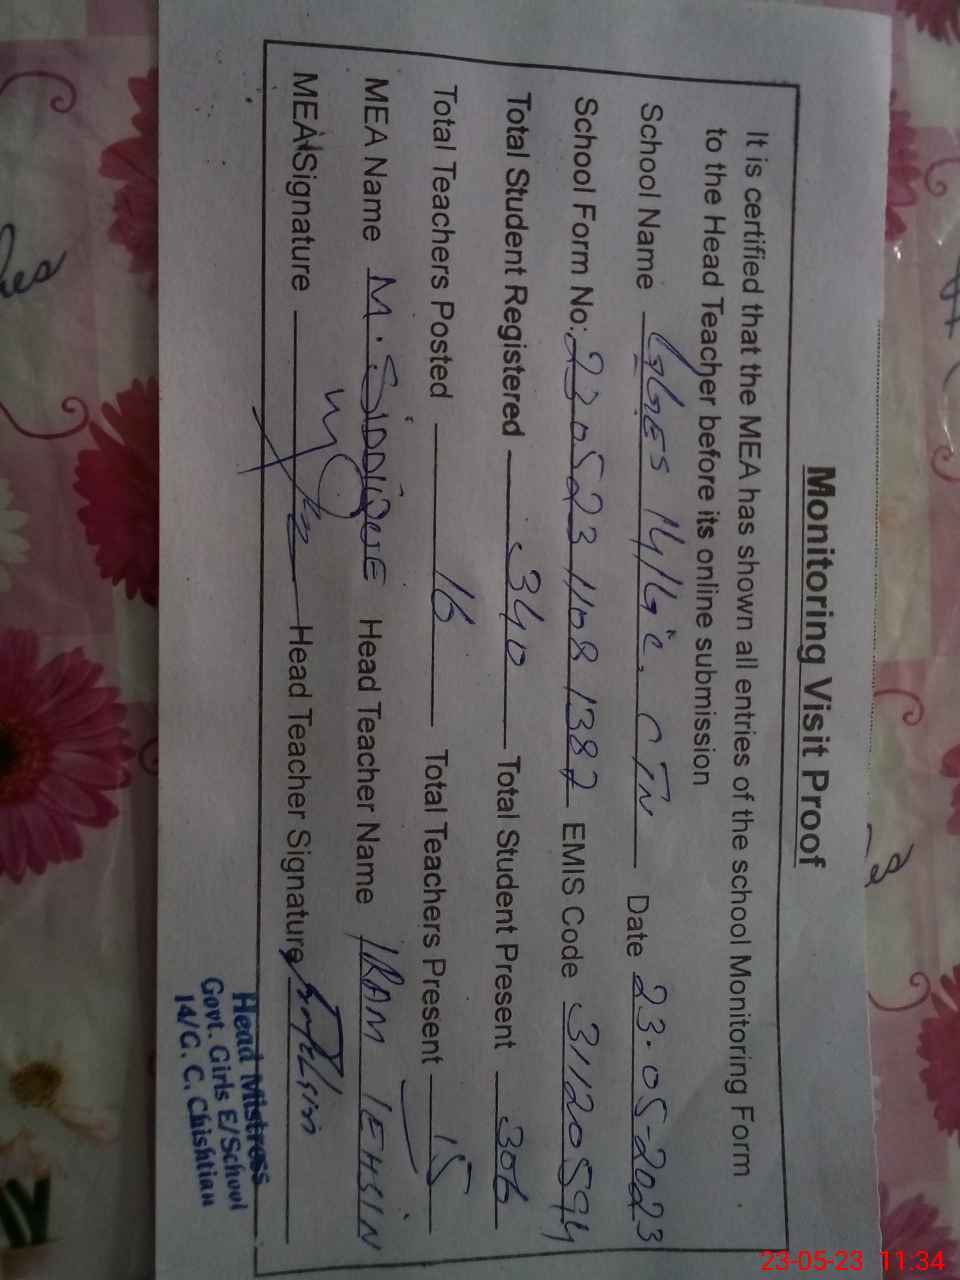 Monitoring Visit Proof
It is certified that the MEA has shown all entries of the school Monitoring Form
to the Head Teacher before its online submission
School Name GGES 14/G.C. CTN Date 23-05-2023
School Form No: 230523 1108 1387 EMIS Code 31120594
Total Student Registered 340 Total Student Present 306
Total Teachers Posted 16 Total Teachers Present 15
MEA Name M. SIDDIQUE Head Teacher Name IRAM TEHSIN
MEA Signature Head Teacher Signature
Head Mistress
Govt. Girls E/School
14/G. C. Chishtian
23-05-23 11:34